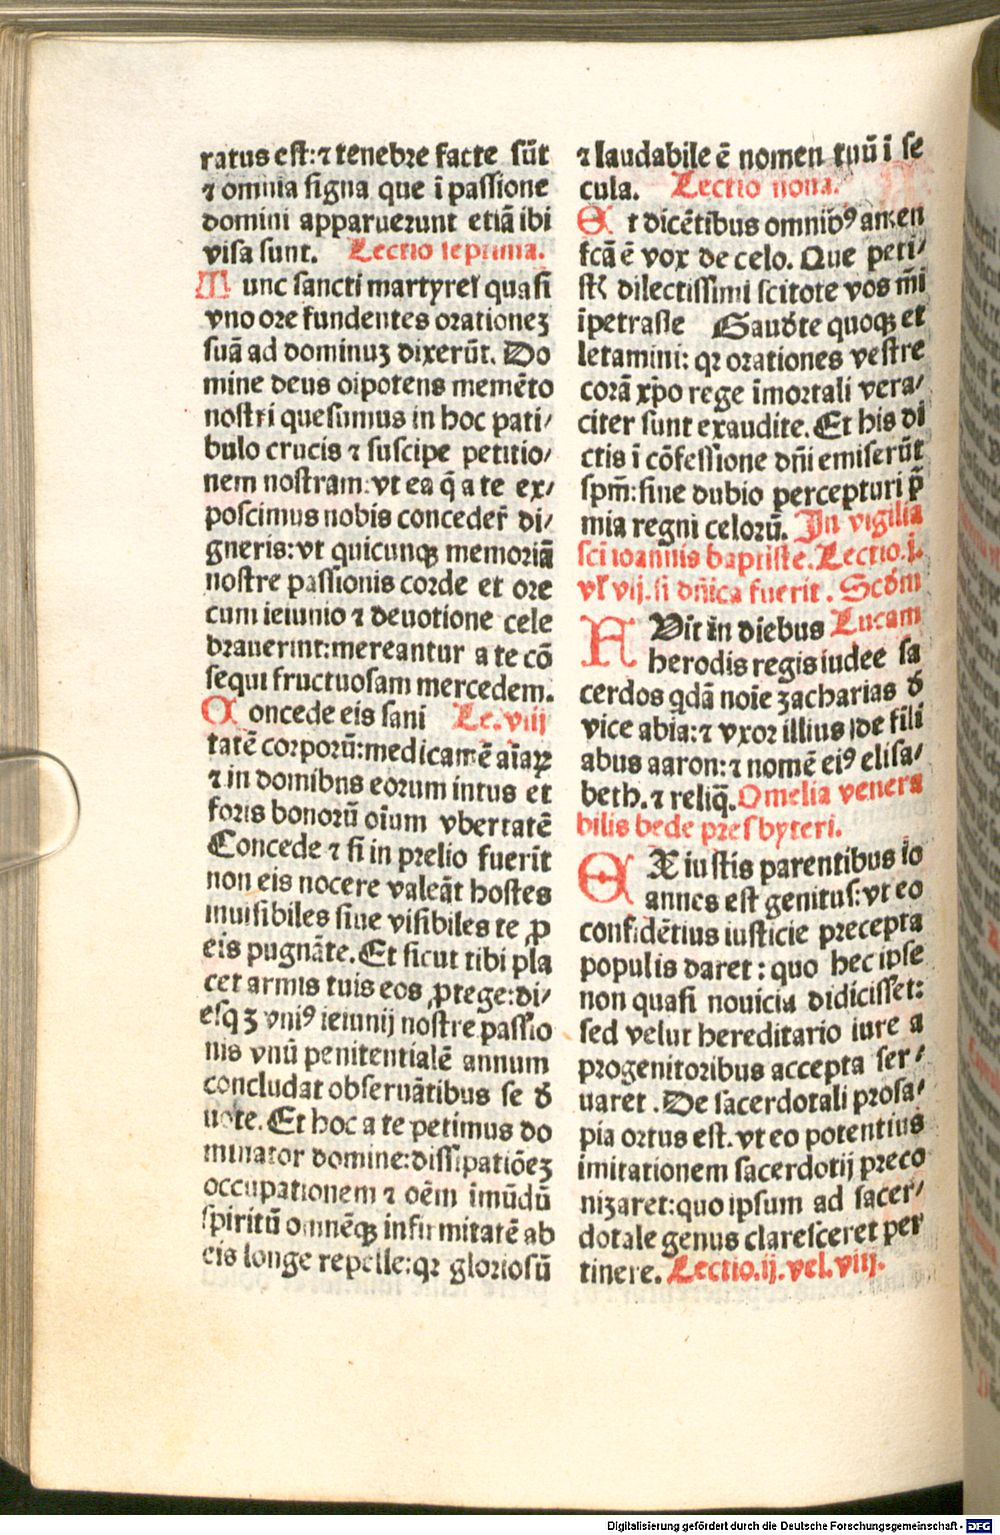 ratus est:⁊ tenebre facte sūt
⁊ omnia signa que ī passione
domini apparuerunt etiā ibi
visa sunt. Lectio septima.
Tunc sancti martyres quasi
vno ore fundentes orationeꝫ
suā ad dominuꝫ dixerūt. Do
mine deus oīpotens memēto
nostri quesumus in hoc pati/
bulo crucis ⁊ suscipe petitio/
nem nostram:vt ea q̄ a te ex/
poscimus nobis conceder̄ di/
gneris:vt quicunqꝫ memoriā
nostre passionis corde et ore
cum ieiunio ⁊ deuotione cele
brauerint:mereantur a te cō
sequi fructuosam mercedem.
Concede eis sani Le.viij
tatē corporū:medicamē aīaꝝ
⁊ in domibns eorum intus et
foris bonorū oīum vbertatē
Concede ⁊ si in prelio fuerīt
non eis nocere valeāt hostes
inuisibiles siue visibiles te ꝓ
eis pugnāte. Et sicut tibi pla
cet armis tuis eos ꝓtege:di/
esqꝫ vniꝰ ieiunij nostre passio
nis vnū penitentialē annum
concludat obseruātibus se ð
uote. Et hoc a te petimus do
minator domine:dissipatiōeꝫ
occupationem ⁊ oēm īmūdū
spiritū omnēqꝫ infirmitatē ab
eis longe repelle:qꝛ gloriosū
⁊ laudabile ē nomen tuū ī se
cula. Lectio nona.
Et dicētibus omnibꝰ amen
fcā ē vox de celo. Que peti/
stꝭ dilectissimi scitote vos m̄i
īpetrasse Gaudēte quoqꝫ et
letamini: qꝛ orationes vestre
corā xp̄o rege īmortali vera/
citer sunt exaudite. Et his di
ctis ī cōfessione dn̄i emiserūt
spm̄:sine dubio percepturi p̄
mia regni celorū. In vigilia
sci ioannis baptiste. Lectio.j.
vl̄ vij.si dn̄ica fuerit. Scd̄m
FVit in diebus Lucam
herodis regis iudee sa
cerdos qdā noīe ꝫacharias ð
vice abia:⁊ vxor illius de fili
abus aaron:⁊ nomē eiꝰ elisa/
beth.⁊ reliq̄. Omelia venera
bilis bede presbyteri.
EX iustis parentibus io
annes est genitus:vt eo
confidētius iusticie precepta
populis daret : quo hec ipse
non quasi nouicia didicisset:
sed velut hereditario iure a
progenitoribus accepta ser/
uaret .De sacerdotali prosa/
pia ortus est.vt eo potentius
imitationem sacerdotij preco
niꝫaret:quo ipsum ad sacer/
dotale genus claresceret per
tinere. Lectio.ij.vel.viij.
Digitalisierung gefördert durch die Deutsche Forschungsgemeinschaft - DFG